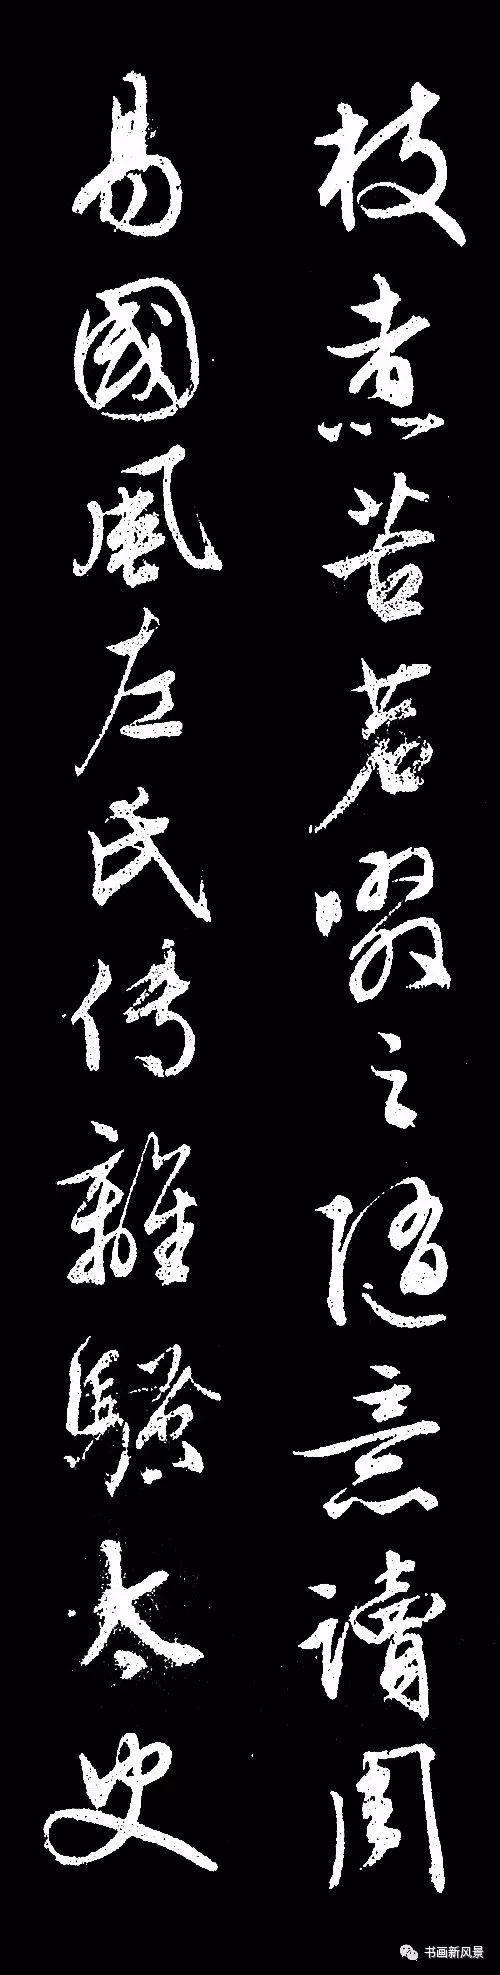 枝煮苦茗啜之随意讀周
易國風左氏传離騷太史
书画新风景